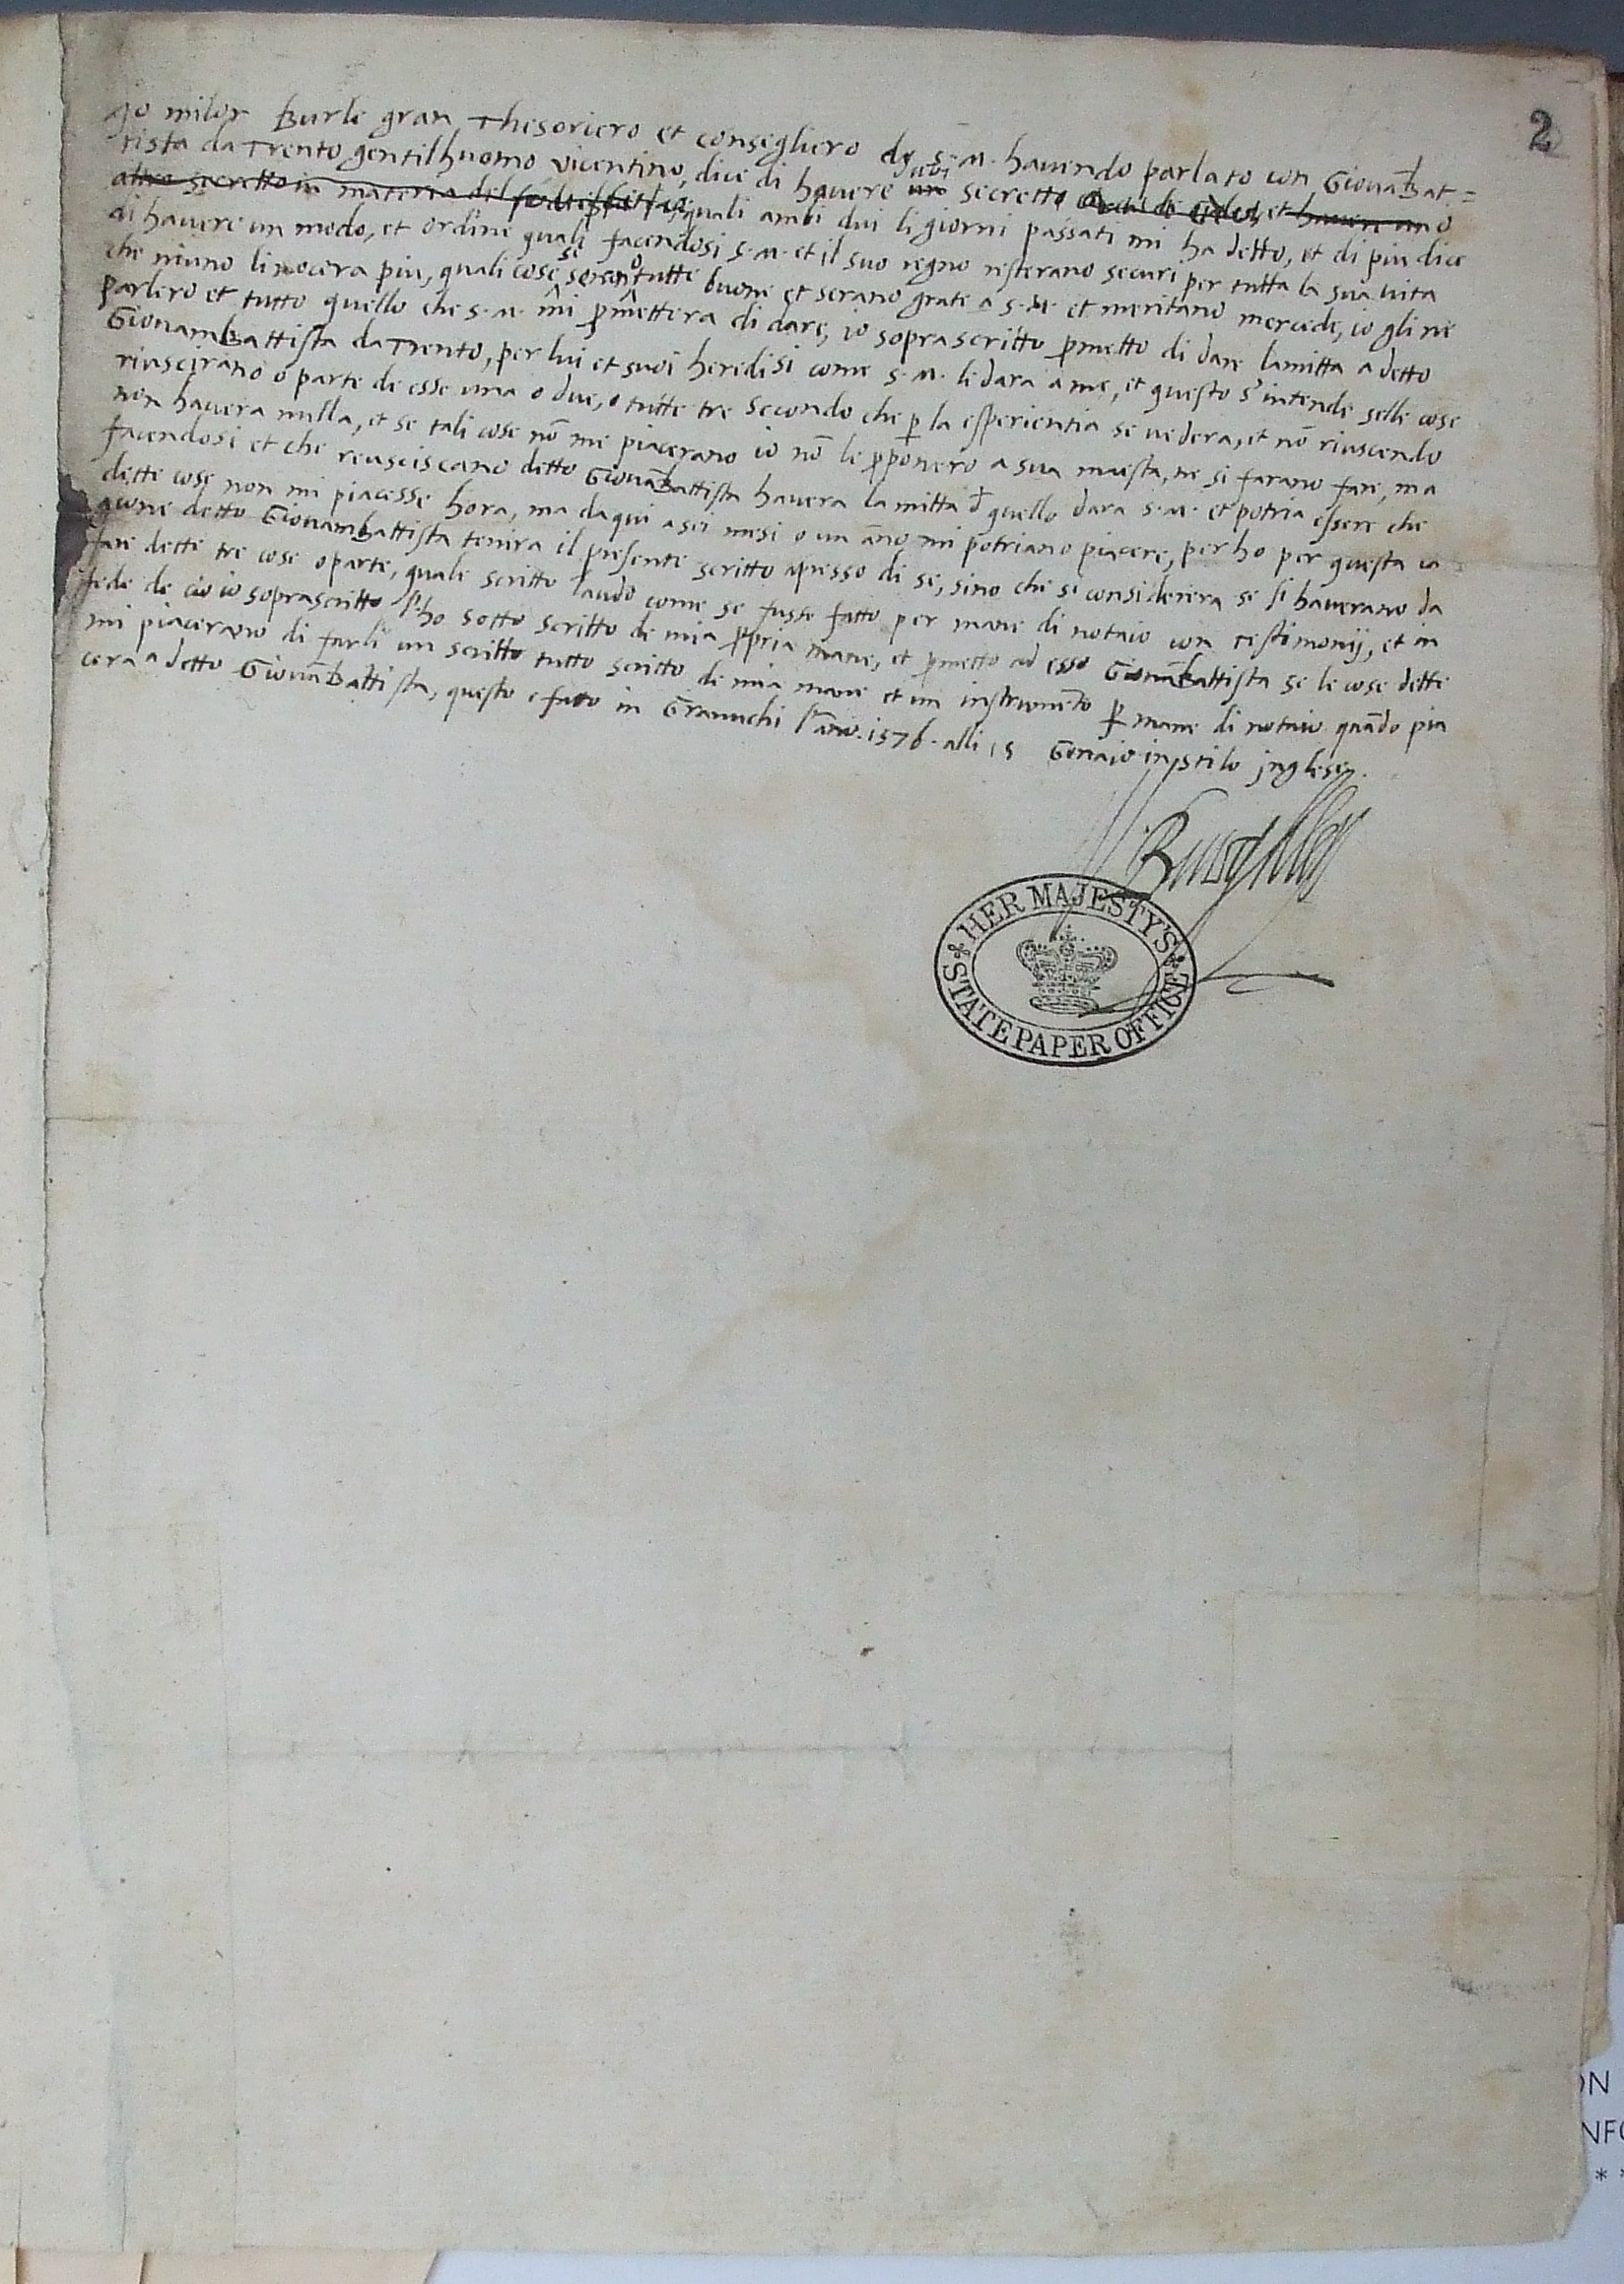 2
Io milor Burle gran Thesoriero et consegliero di s. M. havendo parlato con GiovāBat=
tista da Trento gentilhuomo vicentino, dice di havere un duoi secretto et havere uno
altro secretto in materia del quali ambi dui li giorni passati mi ha detto, et di piu dice
di havere un modo, et ordine quali facendosi s. M. et il suo regno resterano securi per tutta la sua vita
che niuno li nocera piu, quali cose se sono tutte buone et serano grate a s. M. et meritano mercede, io gli ne
parlero et tutto quello che s. M. mi pmettera di dare, io soprascritto pmetto di dare la mitta a detto
GiovamBattista da Trento, per lui et suoi heredi si come s. M. le dara a me, et questo s'intende selle cose
riuscirano o parte de esse una o due, o tutte tre secondo che p la esperientia se vedera, et nō riuscendo
non havera nulla, et se tali cose nō me piacerano io nō le pponero a sua maesta, ne si farano fare, ma
facendosi et che reusciscano detto GiovāBattista havera la mitta d quello dara s. M. et potria essere che
dette cose non mi piacesse hora, ma da qui a sei mesi o un āno mi potriano piacere, perho per questa ca
gione detto GiovamBattista tenira il presente scritto apresso di se, sino che si considerera se si haverano da
fare dette tre cose o parte, quale scritto laudo come se fusse fatto per mane di notaio con testimonij, et in
fede de cio io soprascritto l'ho sotto scritto de mia ppria mane, et pmetto ad esso GiovāBattista se le cose dette
mi piacerano di farli un scritto tutto scritto de mia mane et un instrumēto p mane di notaio quādo pia
cera a detto GiovāBattista, questo e fatto in Granuchi l'anno. 1576. alli 15 Genaio in stilo inglese.
Burghley
HER MAJESTY'S
STATE PAPER OFFICE